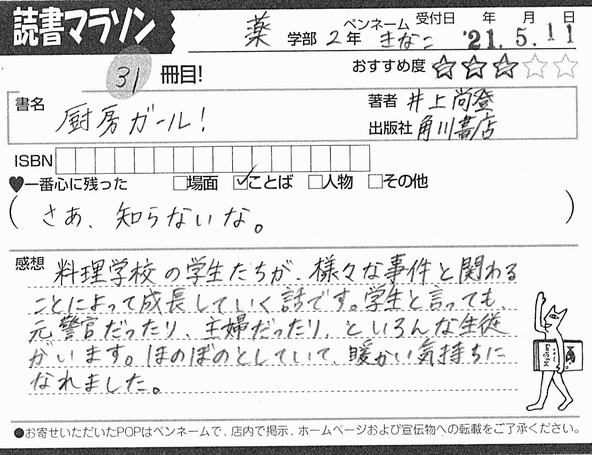 読書マラソン
薬 学部 2年 ペンネーム きなこ 受付日 年 月 日 '21.5.11
31 冊目! おすすめ度 ★★★☆☆
書名 厨房ガール! 著者 井上尚登
出版社 角川書店
ISBN
♥一番心に残った □場面 ☑ことば □人物 □その他
(さあ、知らないな。)
感想 料理学校の学生たちが、様々な事件と関わる
ことによって成長していく話です。学生と言っても、
元警官だったり、主婦だったり、といろんな生徒
がいます。ほのぼのとしていて、暖かい気持ちに
なれました。
●お寄せいただいたPOPはペンネームで、店内で掲示、ホームページおよび宣伝物への転載をご了承ください。